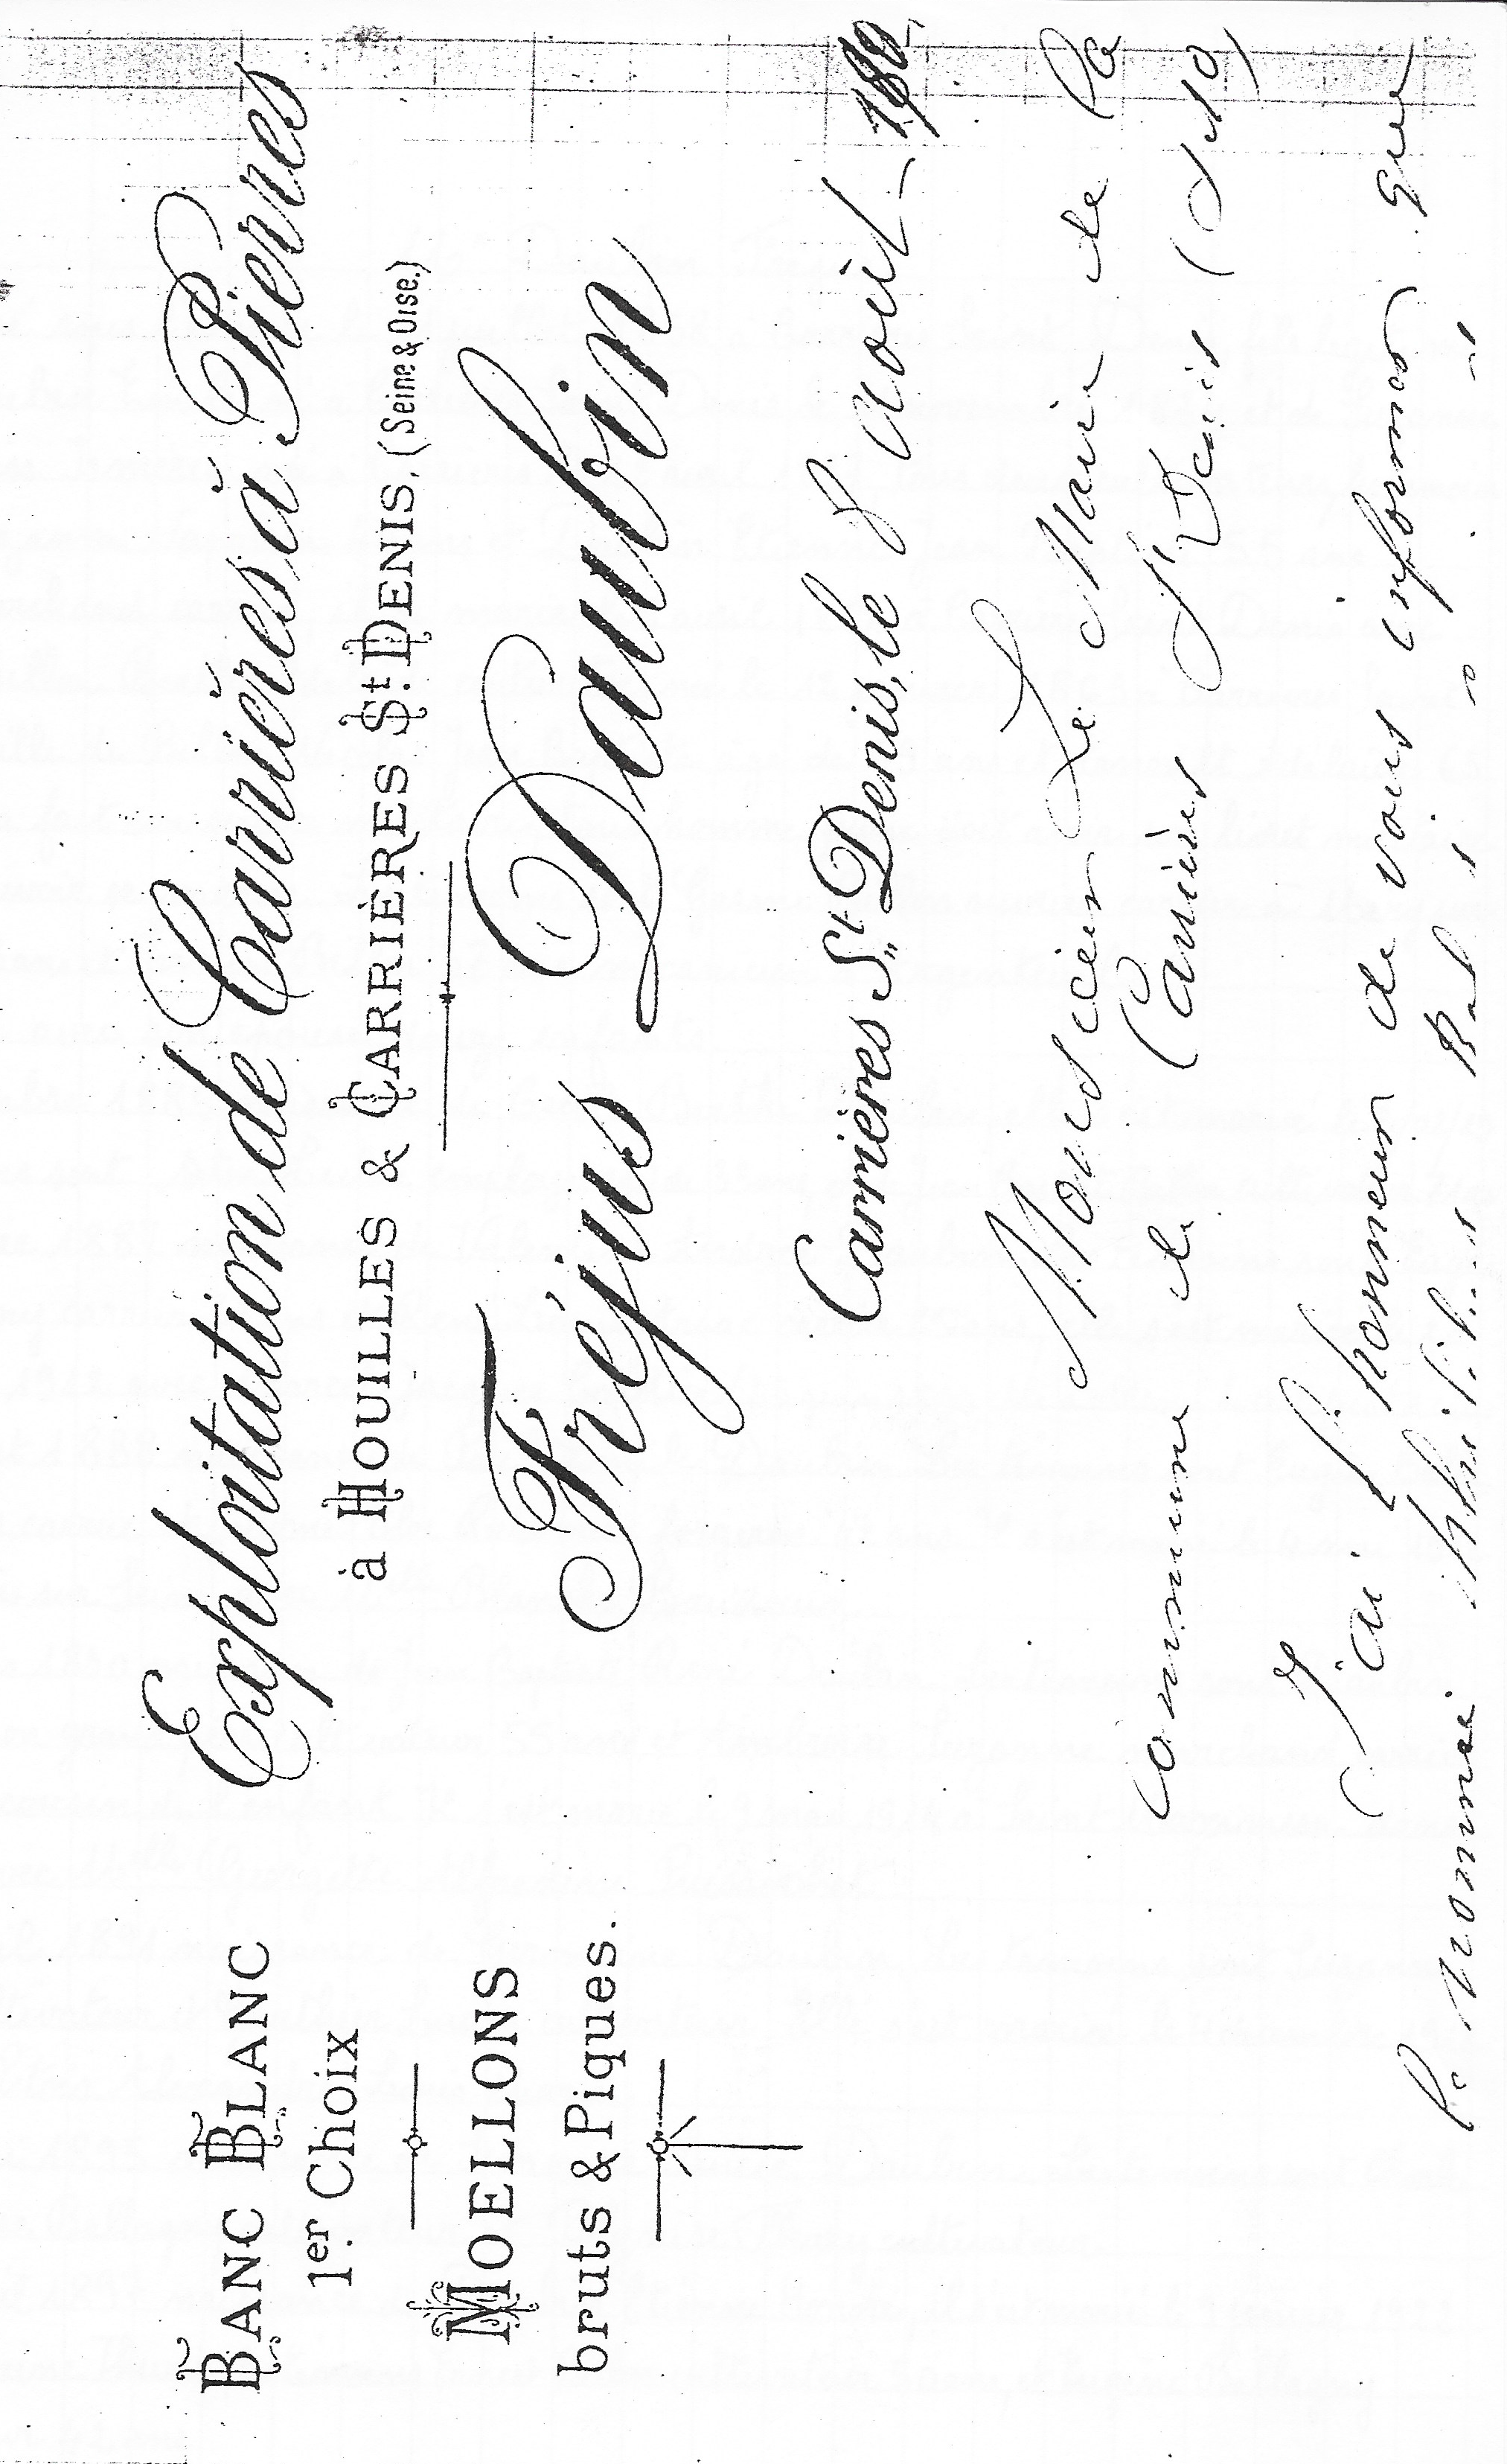 BANC BLANC
1er Choix
MOELLONS
bruts & Piques.
Exploitation de Carrières à Pierres
à HOUILLES & CARRIÈRES St. DENIS, (Seine & Oise.)
Fréjus Daubin
Carrières St Denis, le 8 août 18
Monsieur Le Maire de la
commune de Carrières St Denis (S et O)
J'ai l'honneur de vous informer que
le nommé